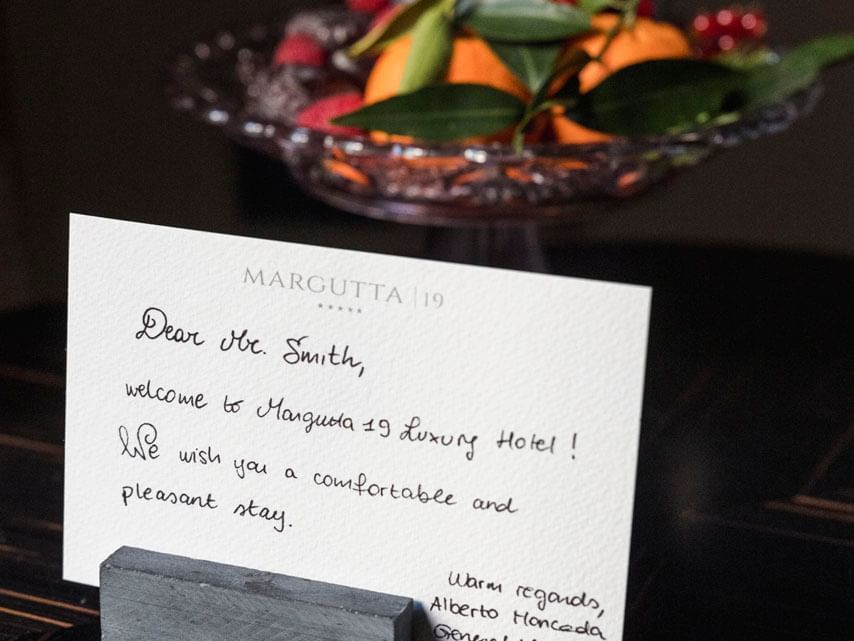 MARGUTTA | 19
★★★★★
Dear Mr. Smith,
welcome to Margutta 19 Luxury Hotel!
We wish you a comfortable and
pleasant stay.
Warm regards,
Alberto Moncada
General